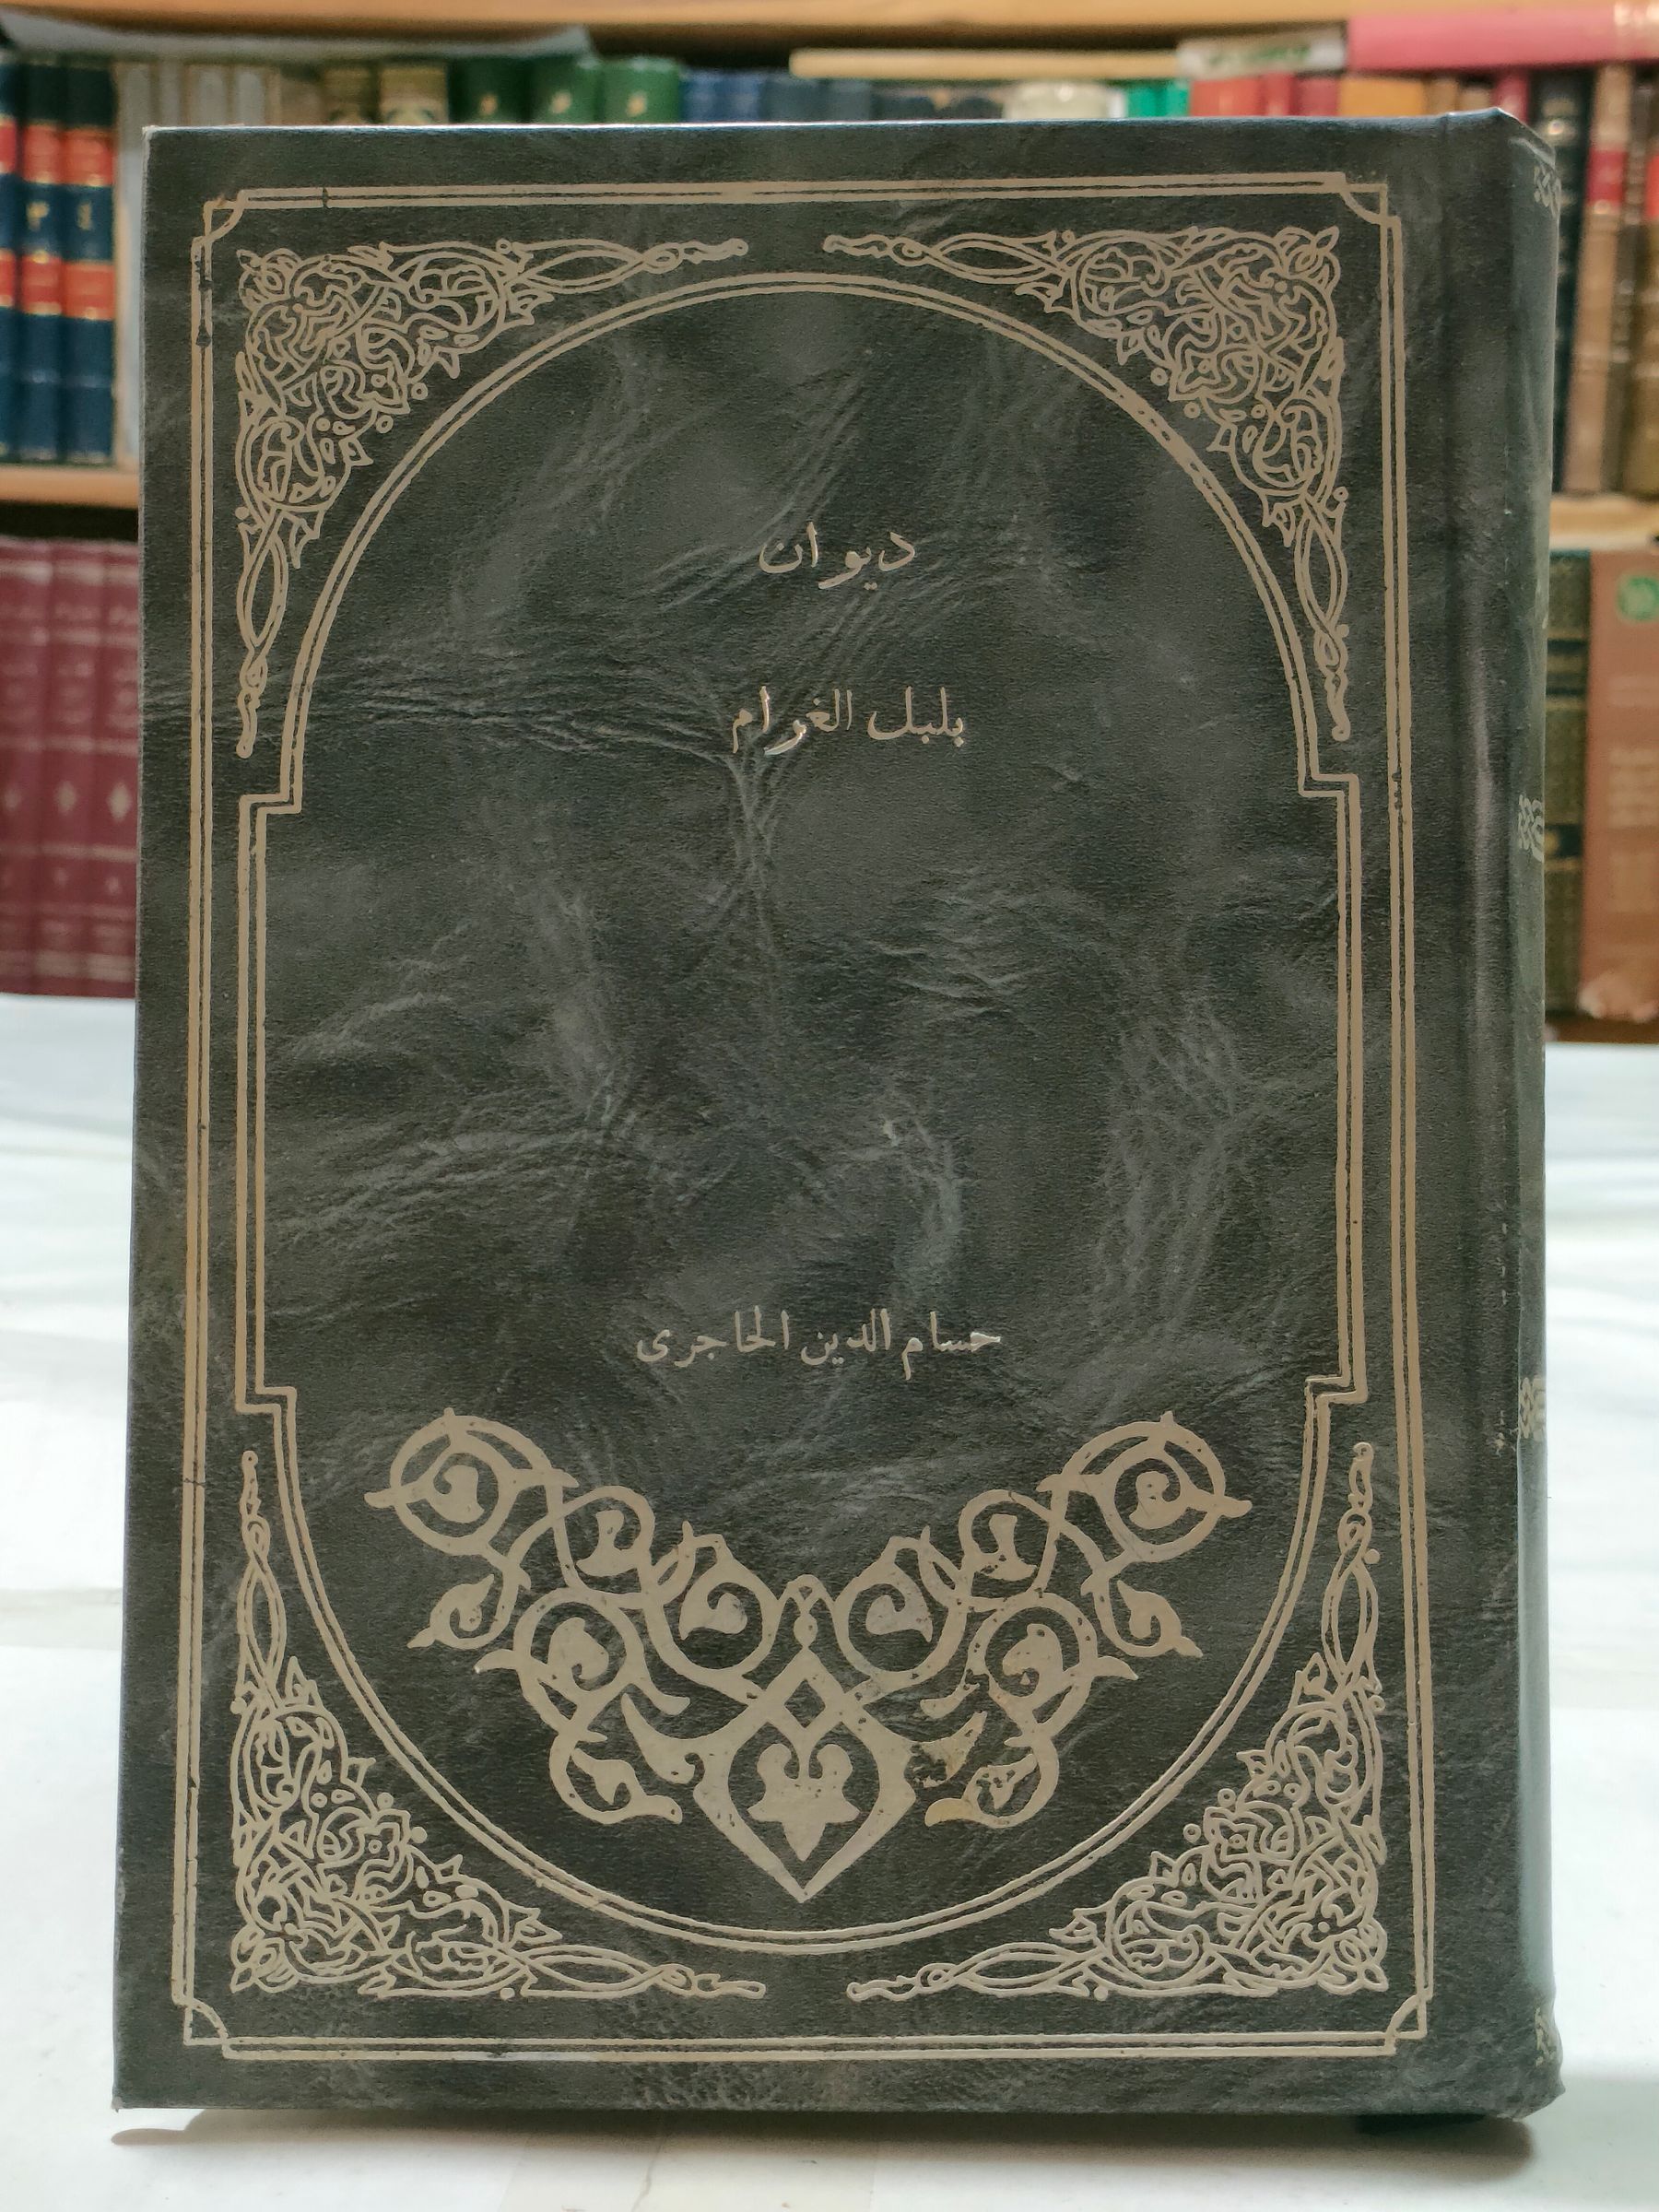 ديوان
بلبل الغرام
حسام الدين الحاجرى